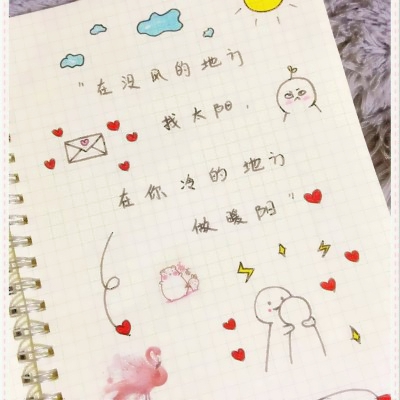 "在没风的地方
找太阳，
在你冷的地方
做暖阳"